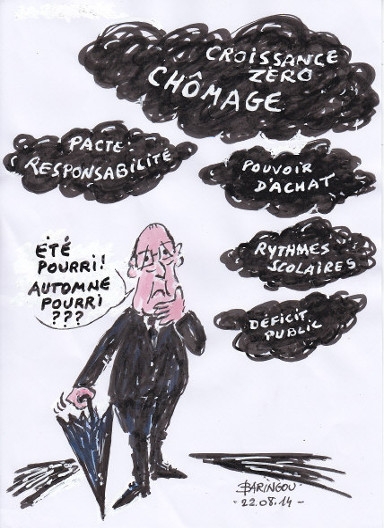 CROISSANCE
ZÉRO
CHÔMAGE
PACTE
RESPONSABILITÉ
POUVOIR
D'ACHAT
RYTHMES
SCOLAIRES
DÉFICIT
PUBLIC
ÉTÉ
POURRI!
AUTOMNE
POURRI
???
BARINGOU
- 22.08.14 -